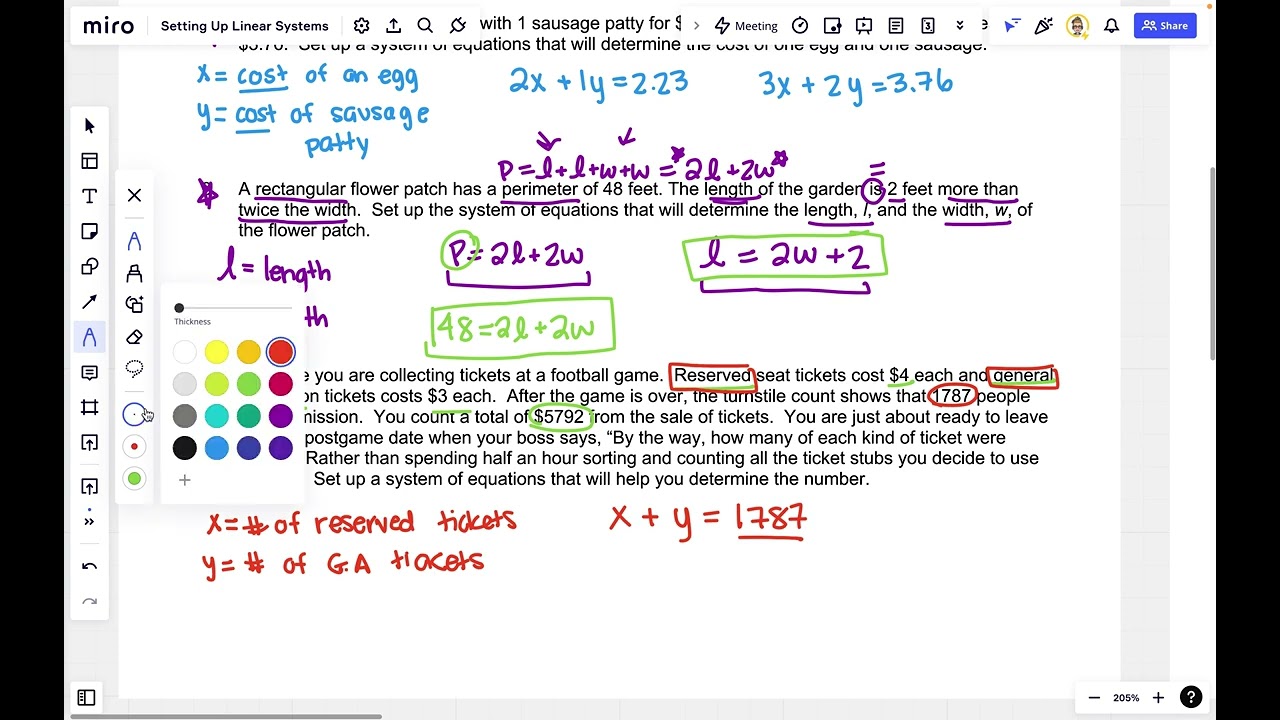 miro
Setting Up Linear Systems
with 1 sausage patty for $
Meeting
Share
$3.76. Set up a system of equations that will determine the cost of one egg and one sausage.
x = cost of an egg
2x + 1y = 2.23
3x + 2y = 3.76
y = cost of sausage patty
P = l + l + w + w = 2l + 2w
=
A rectangular flower patch has a perimeter of 48 feet. The length of the garden is 2 feet more than
twice the width. Set up the system of equations that will determine the length, l, and the width, w, of
the flower patch.
P = 2l + 2w
l = 2w + 2
l = length
th
48 = 2l + 2w
Thickness
e you are collecting tickets at a football game. Reserved seat tickets cost $4 each and general
on tickets costs $3 each. After the game is over, the turnstile count shows that 1787 people
mission. You count a total of $5792 from the sale of tickets. You are just about ready to leave
postgame date when your boss says, “By the way, how many of each kind of ticket were
Rather than spending half an hour sorting and counting all the ticket stubs you decide to use
Set up a system of equations that will help you determine the number.
x = # of reserved tickets
x + y = 1787
y = # of G.A tickets
205%